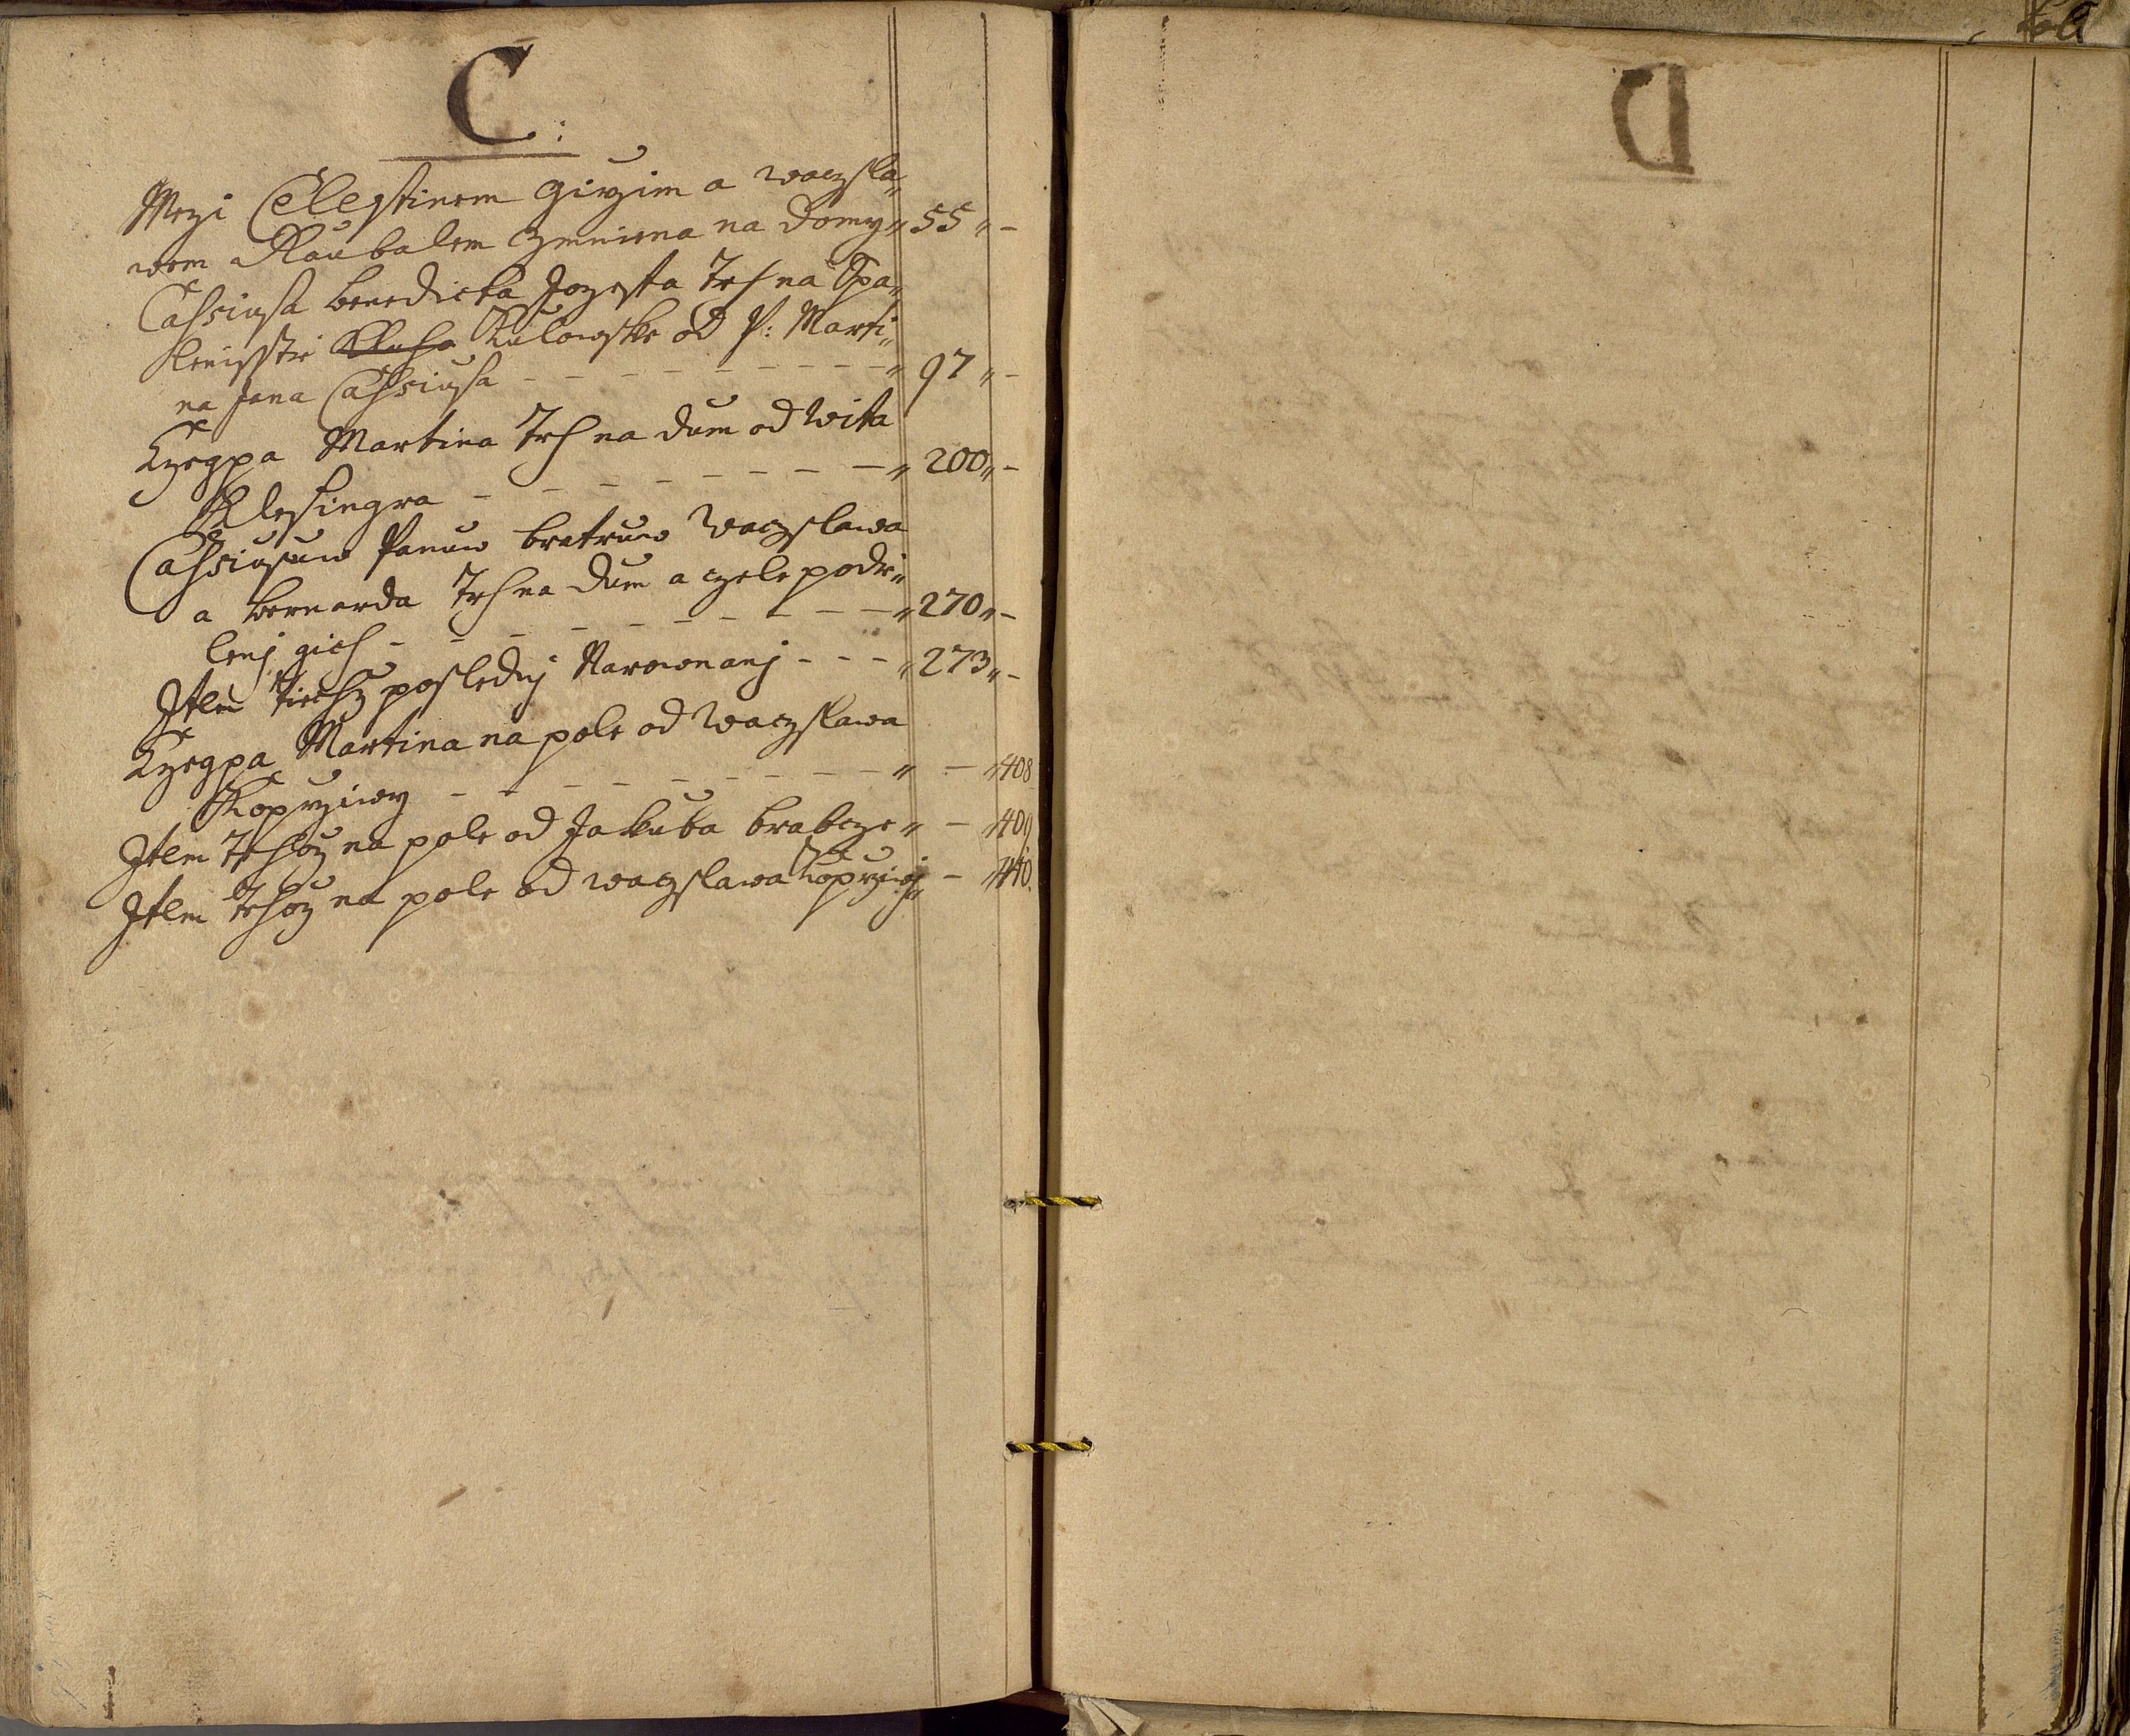 C:
Mezi Celestinem Girzim a Waczsla„
wem Raubalem Zmniena na Domy „ 55 „ –
Cassiusa Benedickta Jozeffa Trh na Spa„
lenisstie Kulowske od P: Marti„
na Jana Cassiusa – – – – – – – – „ 97 „ –
Czegpa Martina Trh na dum od Wita
Klesingra – – – – – – – – „ 200 „ –
Cassiusuw Panuw bratruw Waczslawa
a Bernarda Trh na dum a czele podie„
lenj gich – – – – – – – – „ 270 „ –
Item tiechž poslednj Narownanj – – – „ 273 „ –
Czegpa Martina na pole od Waczslawa
Koprziwy – – – – – – – – „ – „ 408
Item Trhož na pole od Jakuba Brabcze „ – „ 409
Item Trhož na pole od Waczslawa Koprziwj „ – „ 410.
D